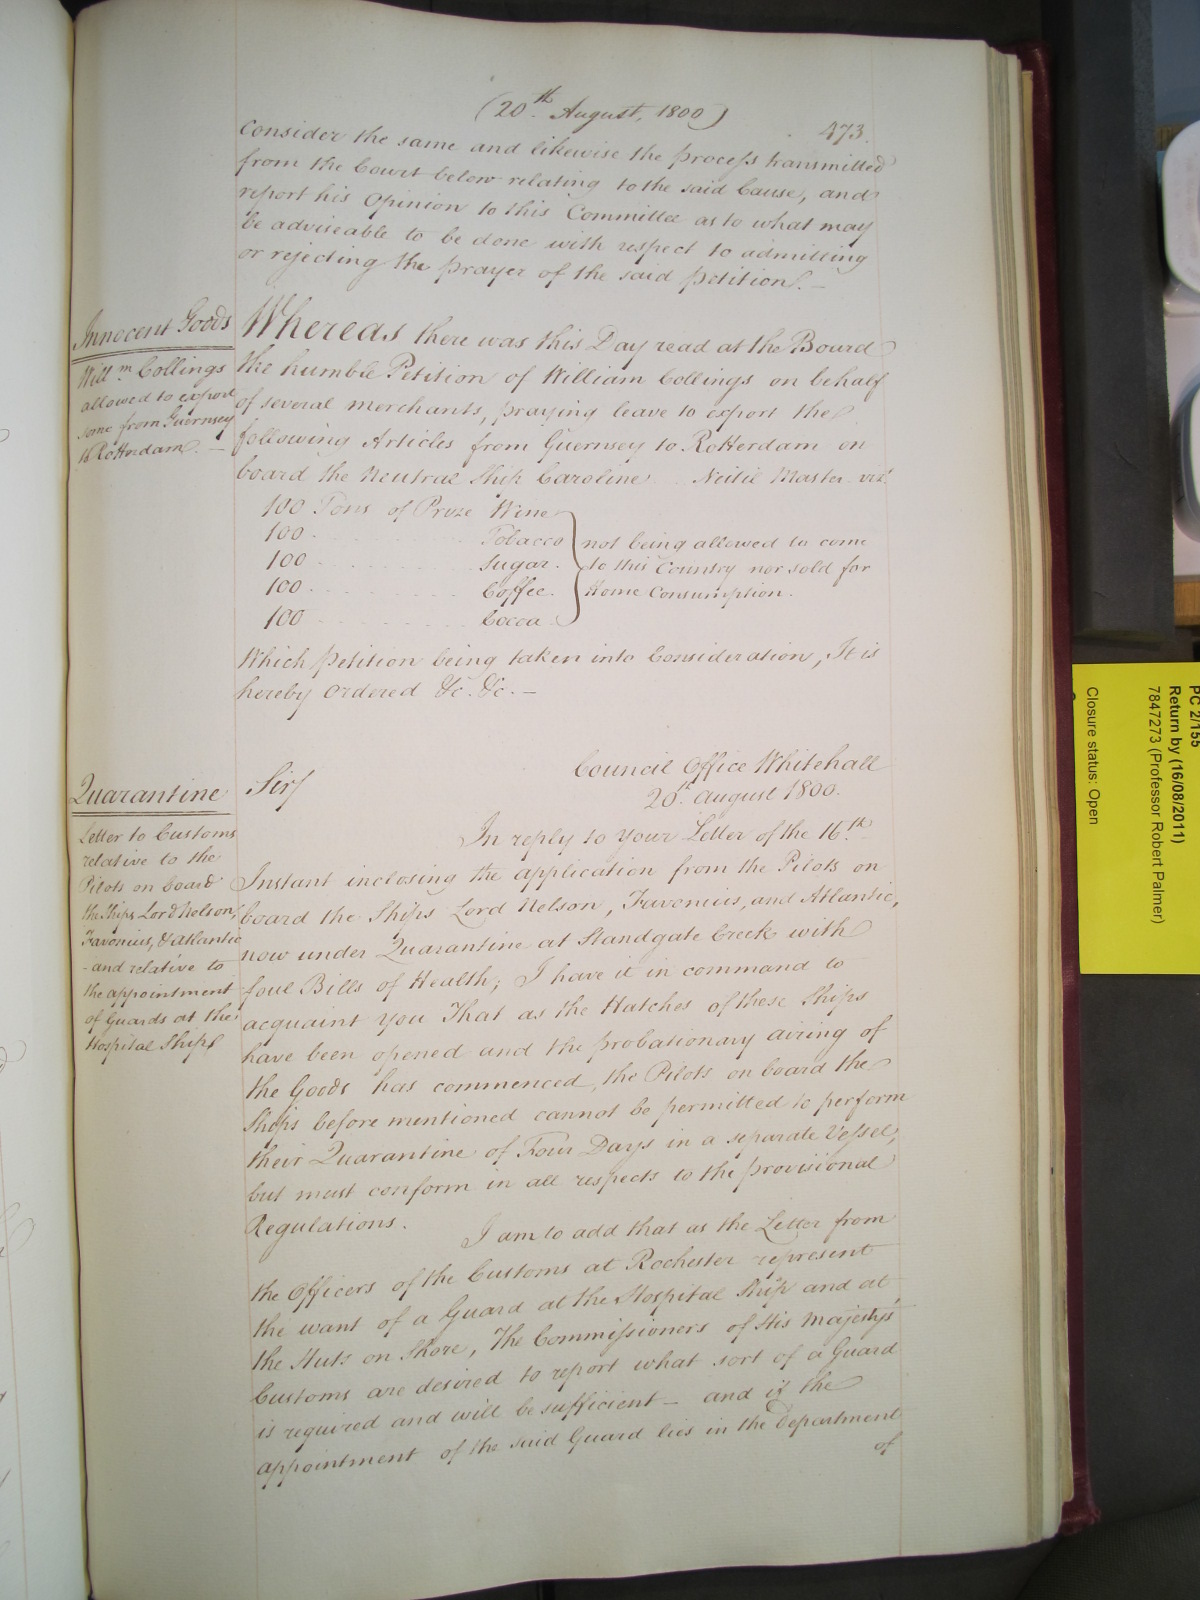 (20th August, 1800)
473.
Consider the same and likewise the process transmitted
from the Court below relating to the said Cause, and
report his Opinion to this Committee as to what may
be adviseable to be done with respect to admitting
or rejecting the prayer of the said petition. —
Innocent Goods
Willm Collings
allowed to export
some from Guernsey
to Rotterdam. —
Whereas there was this Day read at the Board
the humble Petition of William Collings on behalf
of several merchants, praying leave to export the
following Articles from Guernsey to Rotterdam on
board the Neutral Ship Caroline Master vizt
100 Tons of Prize Wine
100 . . . . Tobacco
100 . . . . Sugar.
100 . . . . Coffee.
100 . . . . Cocoa
not being allowed to come
to this Country nor sold for
Home Consumption.
Which petition being taken into Consideration, It is
hereby ordered &c. &c. —
Quarantine
Letter to Customs
relative to the
Pilots on board
the Ships Lord Nelson,
Favonius, & Atlantic
- and relative to
the appointment
of Guards at the
Hospital Ships
Council Office Whitehall
20th August 1800.
Sir,
In reply to your Letter of the 16th
Instant inclosing the application from the Pilots on
board the Ships Lord Nelson, Favonius, and Atlantic,
now under Quarantine at Standgate Creek with
foul Bills of Health; I have it in command to
acquaint you That as the Hatches of these Ships
have been opened and the probationary airing of
the Goods has commenced, the Pilots on board the
Ships before mentioned cannot be permitted to perform
their Quarantine of Four Days in a separate Vessel,
but must conform in all respects to the provisional
Regulations.
I am to add that as the Letter from
the Officers of the Customs at Rochester represent
the want of a Guard at the Hospital Ship and at
the Huts on Shore, The Commissioners of His Majestys
Customs are desired to report what sort of a Guard
is required and will be sufficient — and if the
appointment of the said Guard lies in the Department
of
PC 2/155
Return by (16/08/2011)
7847273 (Professor Robert Palmer)
Closure status: Open